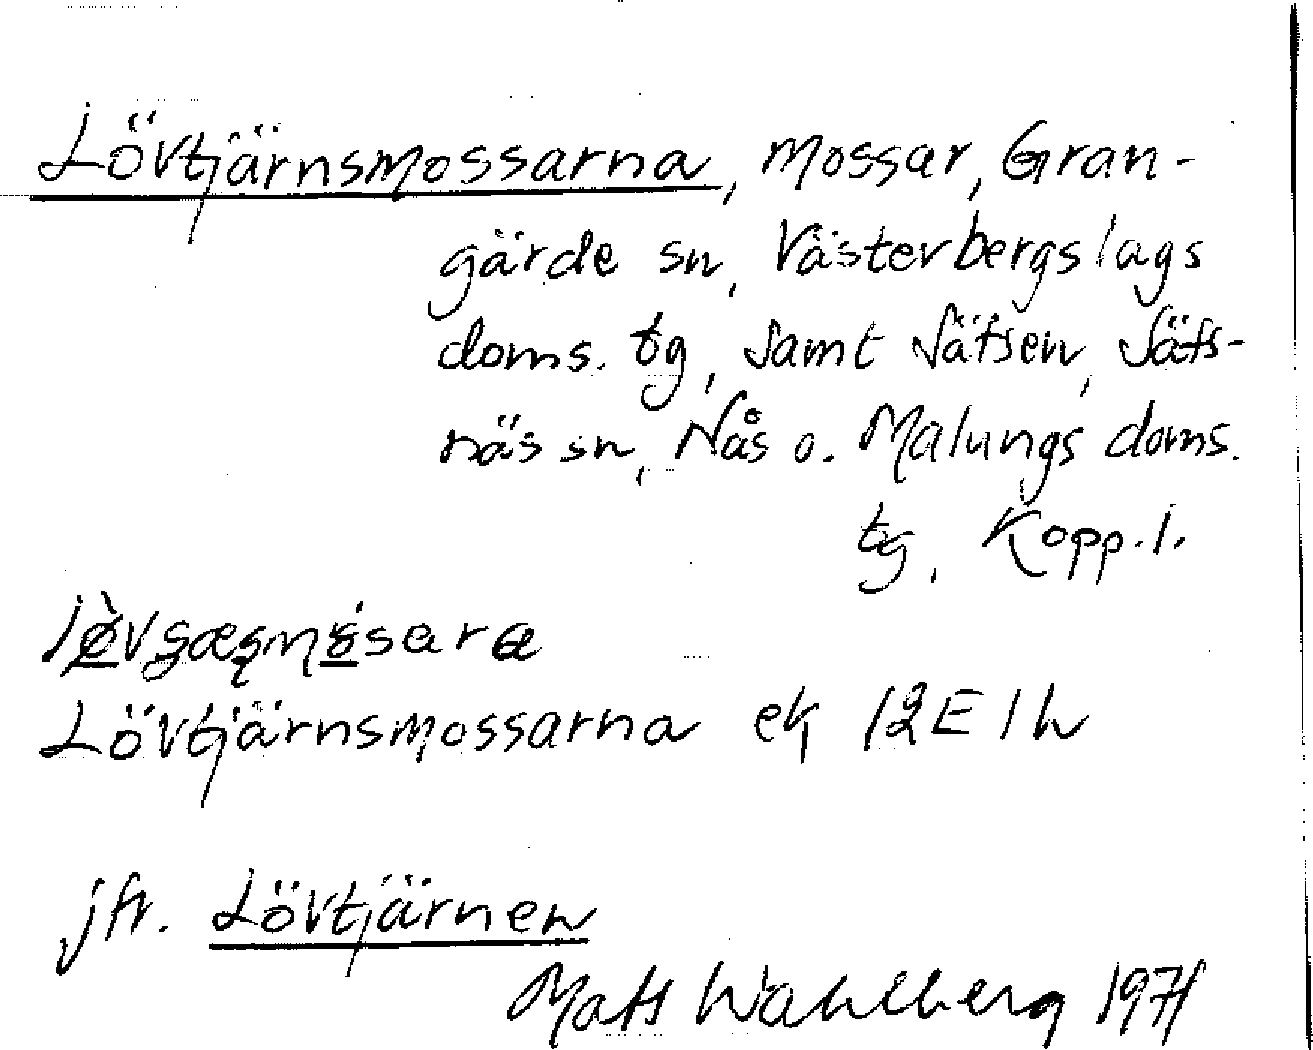 Lövtjärnsmossarna, mossar, Gran-
gärde sn, Västerbergslags
doms. tg, samt Säfsen, Säfs-
näs sn, Nås o. Malungs doms.
tg, Kopp.l.
Lövtjärnsmossarna ek 12E1h
jfr. Lövtjärnen
Mats Wahlberg 1971